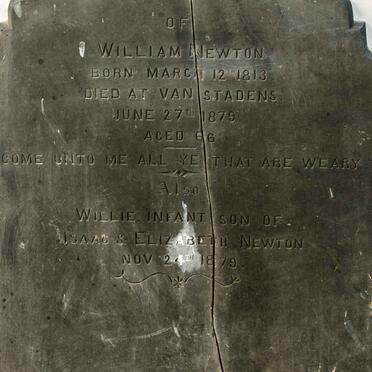 OF
WILLIAM NEWTON
BORN MARCH 12TH 1813
DIED AT VAN STADENS
JUNE 27TH 1879
AGED 66
COME UNTO ME ALL YE THAT ARE WEARY
ALSO
WILLIE INFANT SON OF
ISAAC & ELIZABETH NEWTON
NOV 24TH 1879.